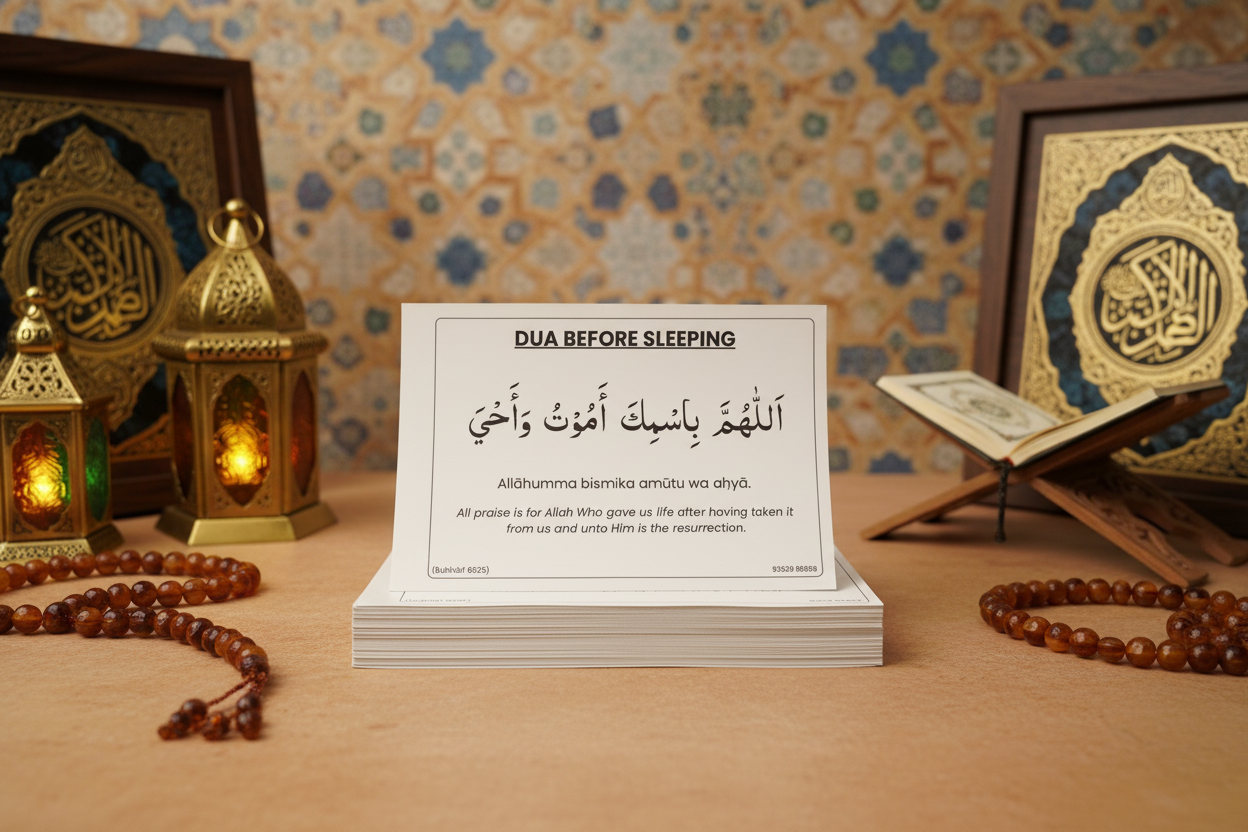 DUA BEFORE SLEEPING
اَللّٰهُمَّ بِاسْمِكَ أَمُوْتُ وَأَحْيَ
Allāhumma bismika amūtu wa aḥyā.
All praise is for Allah Who gave us life after hoving taken it
from us and unto HIm is the resurrection.
93529 86858